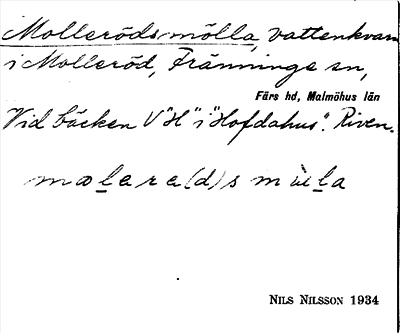 Molleröds mölla, vattenkvarn
i Molleröd, Fränninge sn,
Färs hd, Malmöhus län
Vid bäcken V "H" i "Hofdahus". Riven.
mɷlara(d)s mùla
NILS NILSSON 1934